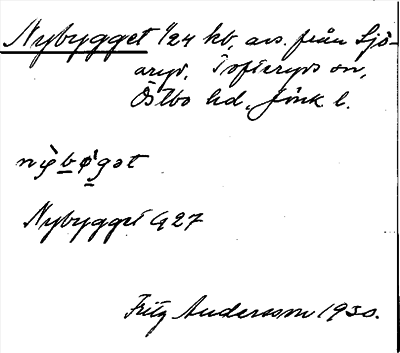 Nybygget 1/24 hb, avs. från Sjö-
aryd, Tofteryds sn,
Östbo hd, Jönk l.
nỳbø̀gət
Nybygget G 27
Fritz Andersson 1930.